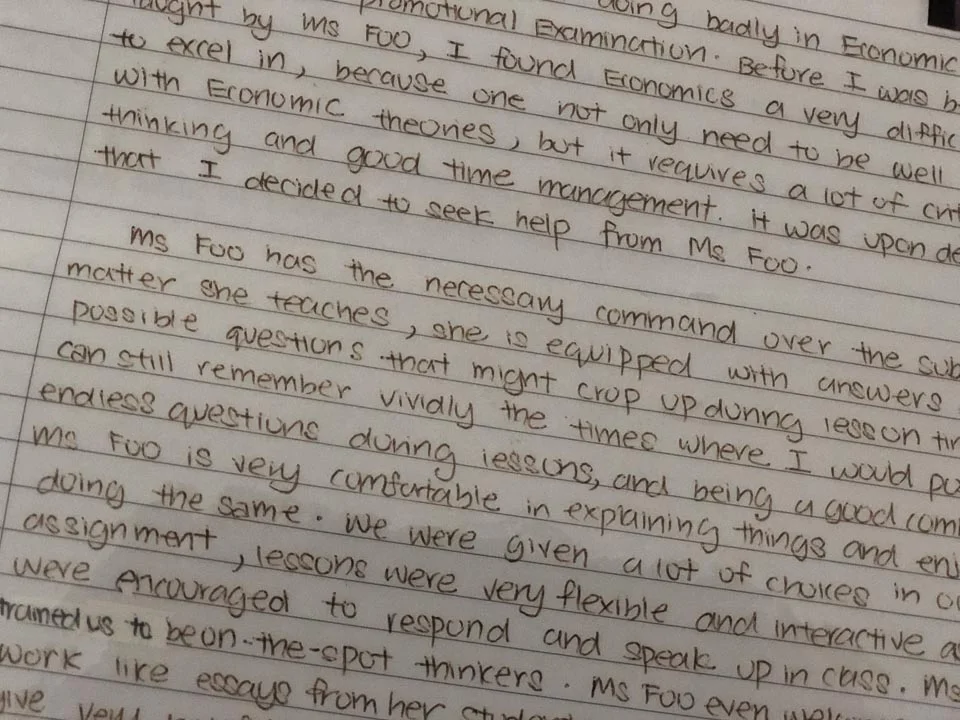 doing badly in Economic
Promotional Examination. Before I was b
taught by Ms Foo, I found Economics a very diffic
to excel in, because one not only need to be well
with Economic theories, but it requires a lot of crit
thinking and good time management. It was upon de
that I decided to seek help from Ms Foo.
Ms Foo has the necessary command over the sub
matter she teaches, she is equipped with answers
possible questions that might crop up during lesson tim
can still remember vividly the times where I would po
endless questions during lessons, and being a good com
Ms Foo is very comfortable in explaining things and enj
doing the same. We were given a lot of choices in ou
assignment, lessons were very flexible and interactive a
were encouraged to respond and speak up in class. Ms
trained us to be on-the-spot thinkers. Ms Foo even
work like essays from her
give very